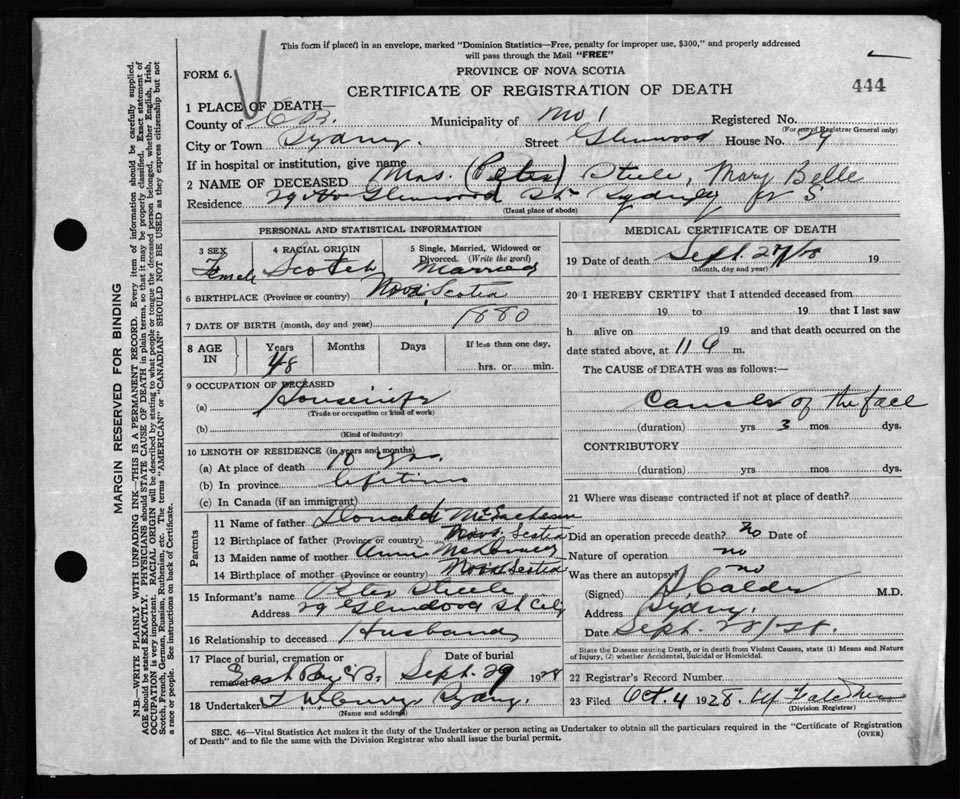 This form if placed in an envelope, marked "Dominion Statistics—Free, penalty for improper use, $300," and properly addressed
will pass through the Mail "FREE"
FORM 6.
PROVINCE OF NOVA SCOTIA
CERTIFICATE OF REGISTRATION OF DEATH
444
1 PLACE OF DEATH—
County of C B. Municipality of No 1 Registered No.
(For use of Registrar General only)
City or Town Sydney. Street Glenwood House No. 29
If in hospital or institution, give name
2 NAME OF DECEASED Mrs. (Peter) Steele, Mary Belle
Residence 29 Glenwood St Sydney N S
(Usual place of abode)
PERSONAL AND STATISTICAL INFORMATION
3 SEX Female
4 RACIAL ORIGIN Scotch
5 Single, Married, Widowed or Divorced. (Write the word) Married
6 BIRTHPLACE (Province or country) Nova Scotia
7 DATE OF BIRTH (month, day and year) 1880
8 AGE IN Years 48 Months Days If less than one day, hrs. or min.
9 OCCUPATION OF DECEASED
(a) Housewife
(Trade or occupation or kind of work)
(b)
(Kind of industry)
10 LENGTH OF RESIDENCE (in years and months)
(a) At place of death 10 yrs.
(b) In province lifetime
(c) In Canada (if an immigrant)
Parents
11 Name of father Donald McEachern
12 Birthplace of father (Province or country) Nova Scotia
13 Maiden name of mother Annie
14 Birthplace of mother (Province or country) Nova Scotia
15 Informant's name Peter Steele
Address 29 Glenwood St City
16 Relationship to deceased Husband
17 Place of burial, cremation or removal East Bay C.B. Date of burial Sept. 29 1928
18 Undertaker Sydney.
(Name and address)
MEDICAL CERTIFICATE OF DEATH
19 Date of death Sept. 27/28 19
(Month, day and year)
20 I HEREBY CERTIFY that I attended deceased from
19 to 19 that I last saw
h alive on 19 and that death occurred on the
date stated above, at 11 m.
The CAUSE of DEATH was as follows:—
Cancer of the face
(duration) yrs 3 mos dys.
CONTRIBUTORY
(duration) yrs. mos. dys.
21 Where was disease contracted if not at place of death?
Did an operation precede death? no Date of
Nature of operation no
Was there an autopsy? no
(Signed) Calder M.D.
Address Sydney.
Date Sept. 28/28.
State the Disease causing Death, or in death from Violent Causes, state (1) Means and
Nature of Injury, (2) whether Accidental, Suicidal or Homicidal.
22 Registrar's Record Number
23 Filed Oct. 4 1928.
(Division Registrar)
SEC. 46—Vital Statistics Act makes it the duty of the Undertaker or person acting as Undertaker to obtain all the particulars required in the "Certificate of Registration
of Death" and to file the same with the Division Registrar who shall issue the burial permit.
(OVER)
MARGIN RESERVED FOR BINDING
N.B.—WRITE PLAINLY WITH UNFADING INK—THIS IS A PERMANENT RECORD. Every item of information should be carefully supplied.
AGE should be stated EXACTLY. PHYSICIANS should STATE CAUSE OF DEATH in plain terms, so that it may be properly classified. Exact statement of
OCCUPATION is very important. RACIAL ORIGIN will be described by stating to what people or tongue the deceased person belonged, whether English, Irish,
Scotch, French, German, Russian, Ruthenian, etc. The terms "AMERICAN" or "CANADIAN" SHOULD NOT BE USED as they express citizenship but not
a race or people. See instructions on back of Certificate.